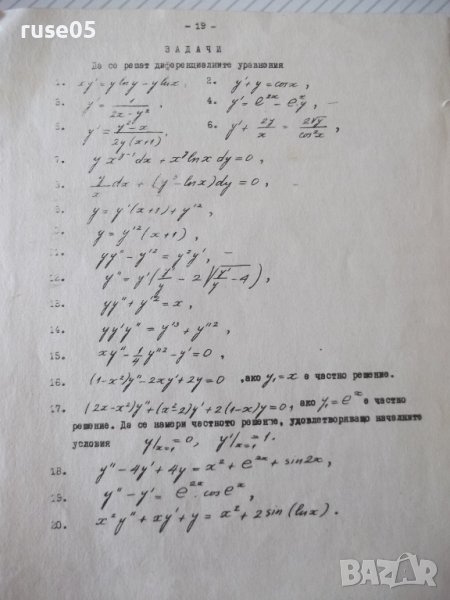 ruse05
- 19 -
ЗАДАЧИ
Да се решат диференциалните уравнения
1. xy' = y ln y - y ln x, 2. y' + y = cos x,
3. y' = 1/(2x - y²) 4. y' = e^{2x} - e^x y,
5. y' = (y² - x)/(2y(x+1)) 6. y' + 2y/x = 2√y/cos²x,
7. y x^{y-1} dx + x^y ln x dy = 0,
y/x dx + (y³ - ln x) dy = 0,
8. y = y'(x+1) + y'²,
y = y'²(x+1),
11. yy'' - y'² = y²y',
12. y'' = y'(y'/y - 2√(y'/y - 4)),
13. yy'' + y'² = x,
14. yy'y'' = y'³ + y''²,
15. xy'' - 1/4 y''² - y' = 0,
16. (1-x²)y'' - 2xy' + 2y = 0, ако y₁ = x е частно решение.
17. (2x-x²)y'' + (x²-2)y' + 2(1-x)y = 0, ако y₁ = e^x е частно
решение. Да се намери частното решение, удовлетворяващо началните
условия y|x=1 = 0, y'|x=1 = 1.
18. y'' - 4y' + 4y = x² + e^{2x} + sin 2x,
19. y'' - y' = e^{2x} cos e^x,
20. x²y'' + xy' + y = x² + 2 sin(ln x).
BAZAR